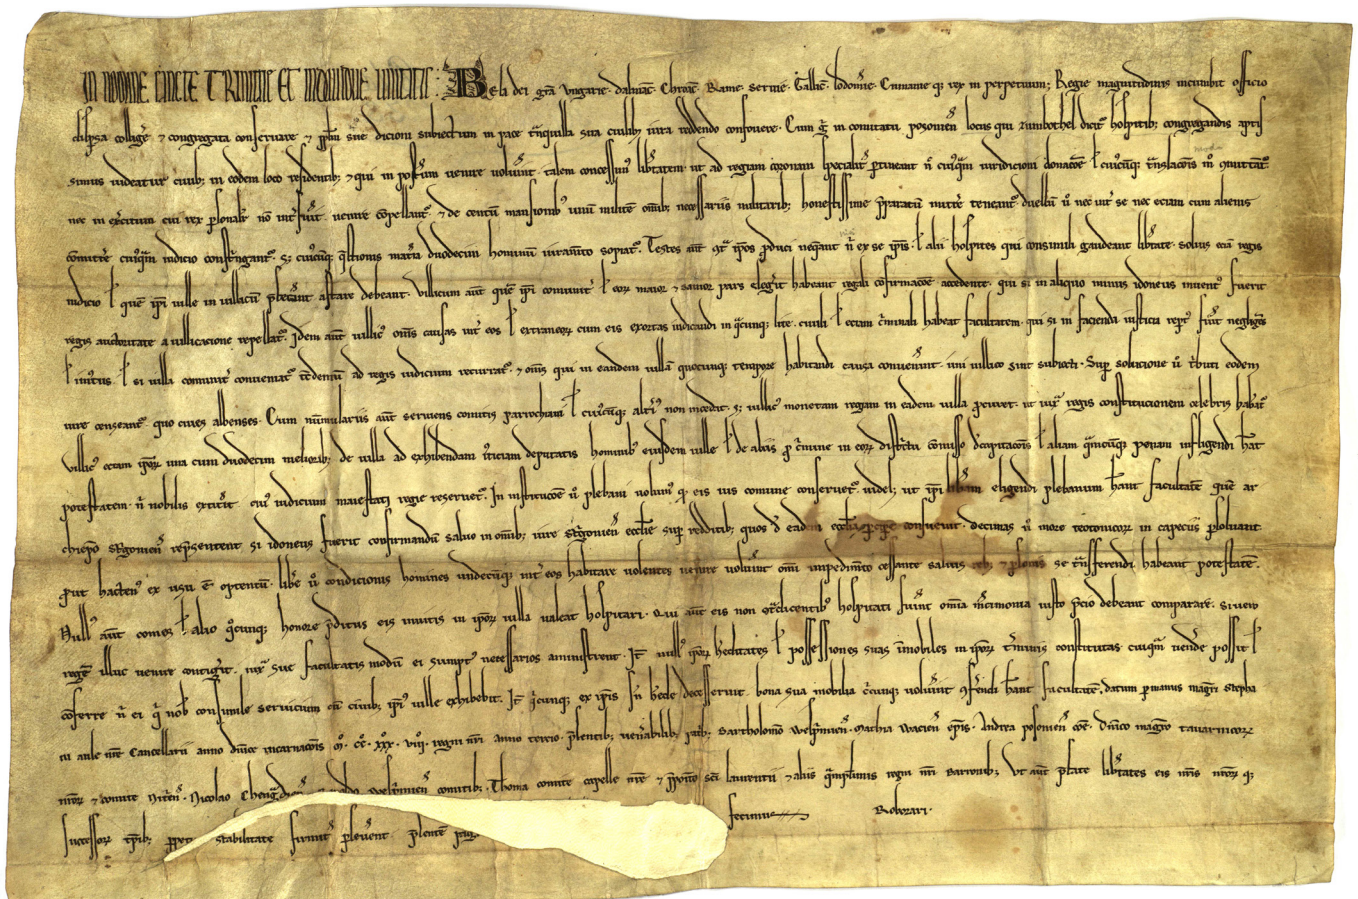 IN NOMINE SANCTE TRINITATIS ET INDIVIDUE UNITATIS : Bela dei gr̄a Vngarie · dalmacie · Chroacie · Rame · seruie · Gallicie · lodomerie · Cumanie q; rex in perpetuum; Regie magnitudinis incumbit officio
dispsa collige & congregata conseruare & pplm sue dicioni subiectum in pace tnquilla sua cuilib; iura reddendo confouere · Cum in comitatu posonien locus qui zumbothel dicit hospitib; congregandis apti
simus uideatur ciuib; in eodem loco residentib; & qui in postum uenire uoluint · talem concessimus libtatem ut ad regiam coronam specialit ptineant n cuiqm iuridicioni donacoe l cuicuq; tnslacois mo
nec in exitum cui rex psonalit non intsuit uenire copellant · & de centum mansionib unum milite omib; necessariis militarib; honestissime pparatu mitte teneant duellu u nec int se nec eciam cum alienis
comitte cuiqm iudicio constngant · s; cuicuq; qstionis matia duodecim hominum iuramto sopiat · Testes aut ipos pduci neqant n ex se ipis · l alii hospites qui consimili gaudeant libtate · solius ecia regis
iudicio l que ipi uille in uillicu pfecant astare debeant · Villicum aut que ipi comunit l eor maior & sanior pars elegit habeant regali cofirmacoe accedente · qui si in aliquo minus idoneus inuent fuerit
regis auctoritate a uillicacione repellat · Idem aut uillic omis causas int eos l extraneor cum eis exortas iudicandi in qcunq; lite · ciuili l eciam cminali habeat facultatem · qui si in facienda iusticia rept fuit negligens
l iniustus · l si uilla comunit conueniat ad regis iudicium recurrat · & omis qui in eandem uilla quocunq; tempore habitandi causa conueniunt · uni uillico sint subiecti · Sup solucione u tbuti eodem
iure censeant quo ciues albenses · Cum numulariis aut seruiens comitis parrochiani l cuicuq; altius non incedat · s; uillic monetam regiam in eadem uilla pcuret · ut iuxta regis constitucionem celebris habeat
uillic eciam ipor una cum duodecim meliorib; de uilla ad exhibendam iusticiam deputatis hominib eiusdem uille l de aliis p cmine in eor districtu comisso decapitacois l aliam qmcuq; penam infligendi hat
potestatem · n nobilis extitit cui iudicium maiestati regie reseruet · In institucoe u plebani uolum q eis ius comune conseruet · uidel; ut ipi libam eligendi plebanum hant facultate que ar
chiepo strigonien repsentent si idoneus fuerit confirmandum saluo in omib; iure strigonien ecclie sup redditib; quos d eadem ecclia pcipe consueuit · decimas u more teotonicor in capeciis psoluant
put hacten ex usu e optentum · libe u condicionis homines undecuq; int eos habitare uolentes uenire uoluint omi impedimto cessante saluis reb; & psonis se tnsferendi habeant potestate
Null aut comes l alio qocunq; honore pditus eis inuitis in ipor uilla ualeat hospitari · Qui aut eis non contdicentib hospitati fuint omia necimonia iusto pcio debeant comparare · Si uero
rege illuc uenire contigit · iux sue facultatis modu ei sumpt necessarios aministrent · It null ipor heditates l possessiones suas imobiles in ipor tminis constitutas cuiqm uende possit l
coferre n ei q nob consimile seruicium cu ciuib; ipi uille exhibebit · It qicunq; ex ipis sn hede decesserint bona sua mobilia cuicunq; uoluint confendi hant facultatem · datum p manus magri stepha
ni aule nre Cancellarii anno dnice incarnacois M · CC · XXX · VIII · regni nri anno tercio · psentib; uenabilib; patrib; Bartholomeo Wesprimien · Mathia Wacien epis · Andrea posonien coe · Dnico magro tauarnicorum
nror & comite Nitrien · Nicolao wesprimien comitib; · Thoma comite capelle nre & pposito sci laurentii & aliis qmplurimis regni nri baronib; Vt aut pfate libtates eis nris nror q;
successor tpib; stabilitate firmit pseuent psentem fecimus Roborari ·